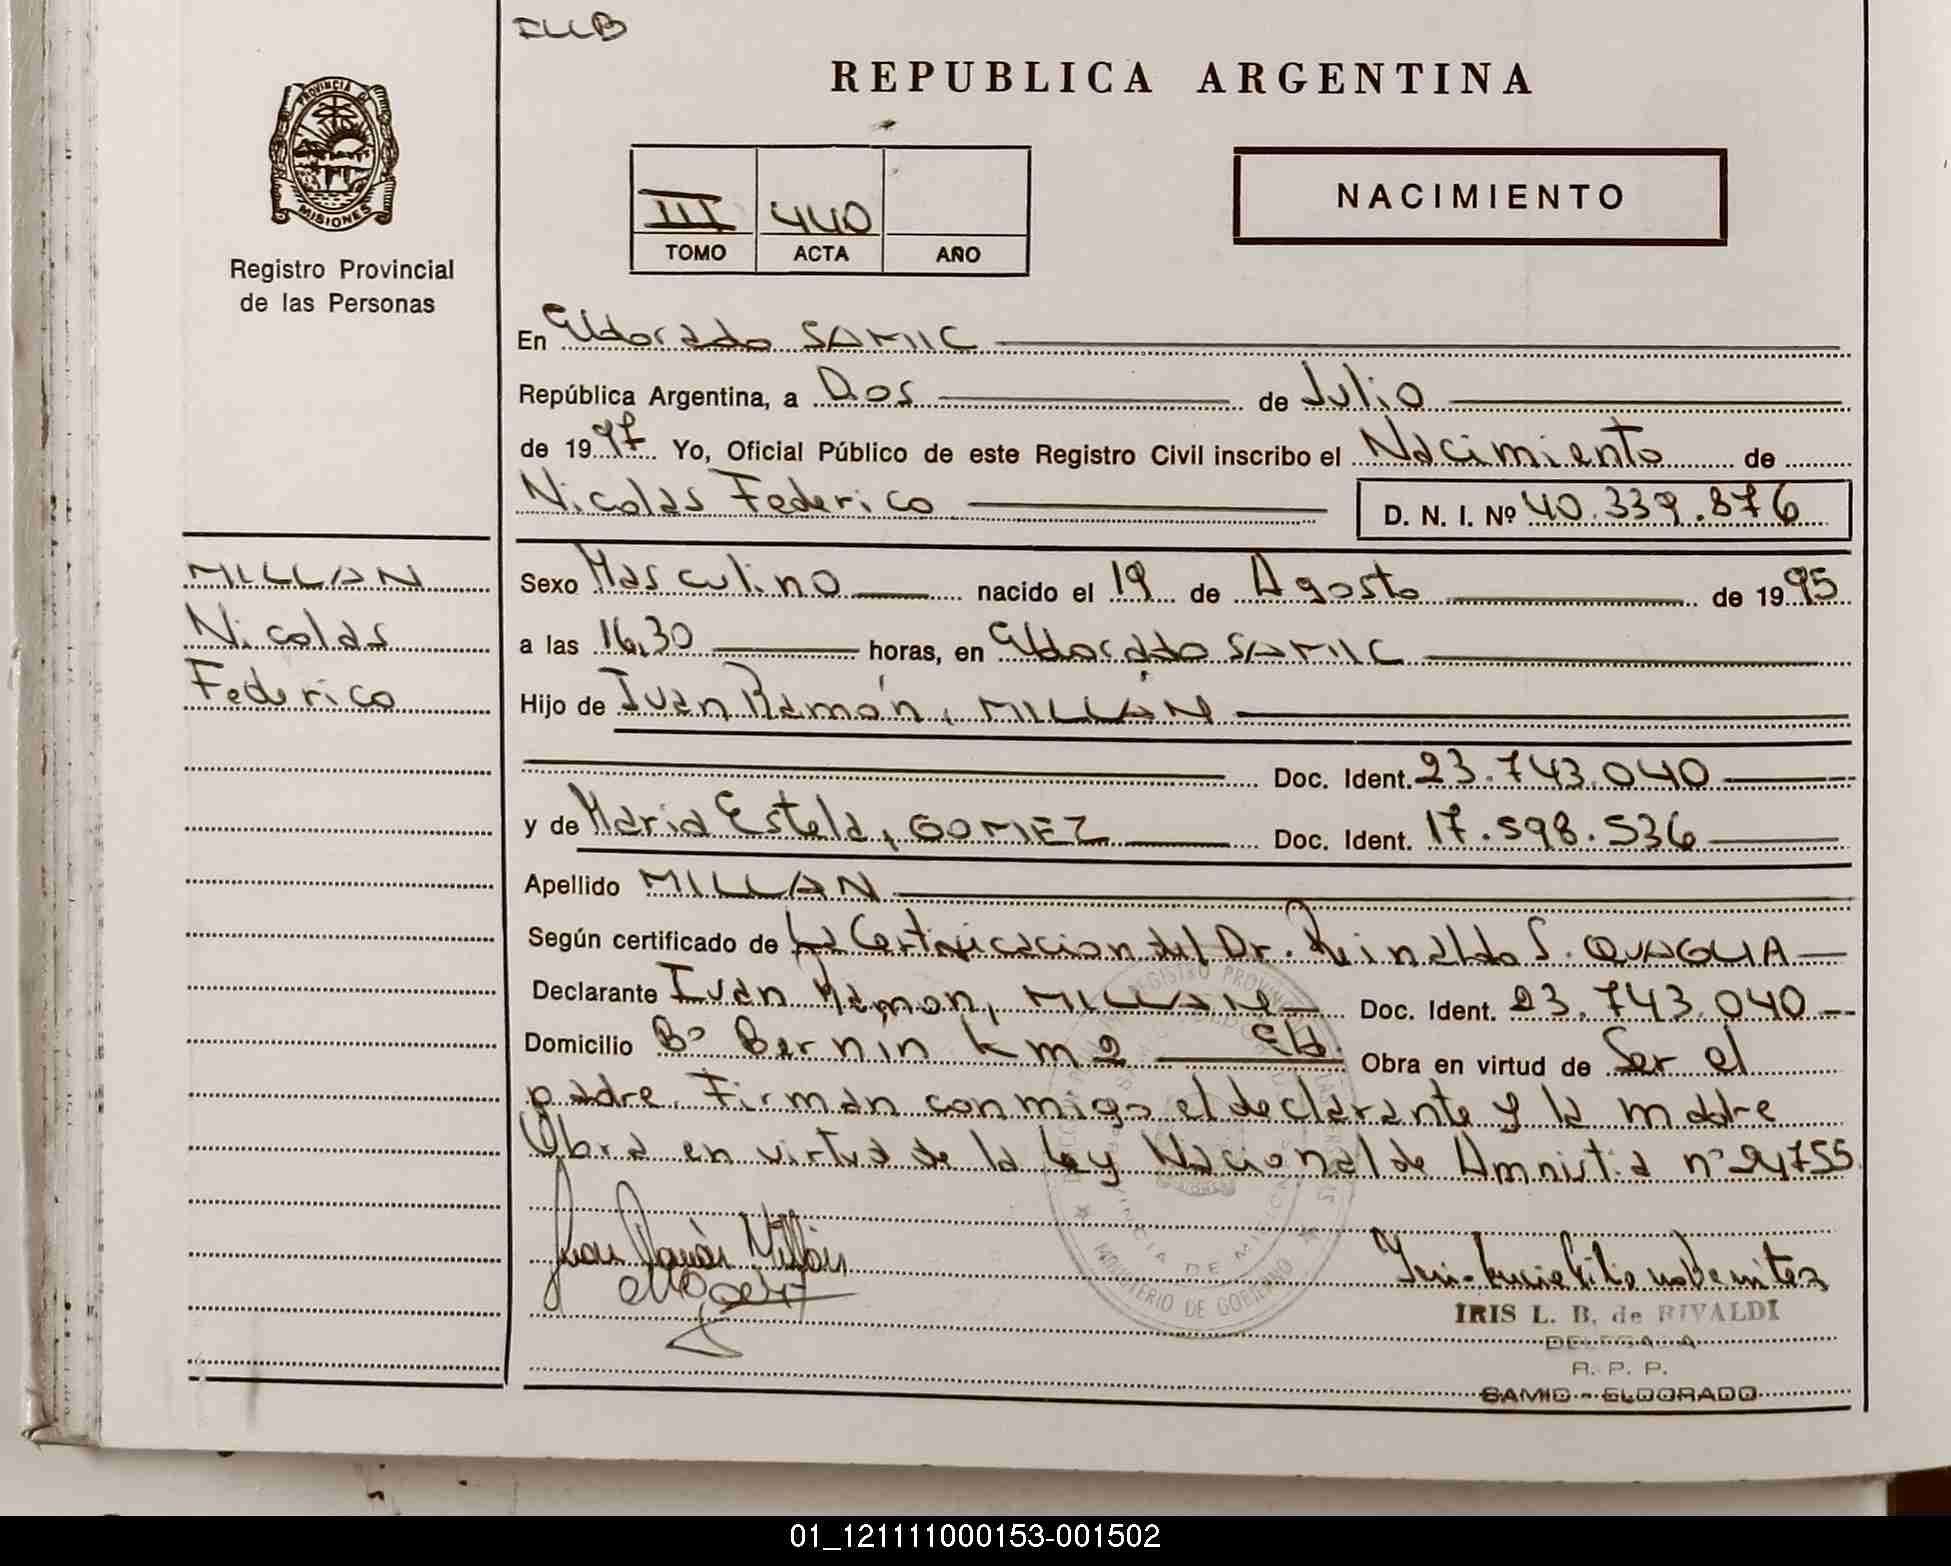 ILLB
REPUBLICA ARGENTINA
PROVINCIA DE
MISIONES
Registro Provincial
de las Personas
III 440
TOMO ACTA AÑO
NACIMIENTO
En Eldorado SAMIC
República Argentina, a Dos de Julio
de 1997 Yo, Oficial Público de este Registro Civil inscribo el Nacimiento de
Nicolas Federico D. N. I. Nº 40.339.876
MILLAN
Nicolas
Federico
Sexo Masculino nacido el 19 de Agosto de 1995
a las 16,30 horas, en Eldorado SAMIC
Hijo de Ivan Ramón, MILLÁN
Doc. Ident. 23.743.040
y de Maria Estela, GOMEZ Doc. Ident. 17.598.536
Apellido MILLAN
Según certificado de La Certificacion del Dr. Reinaldo S. QUAGLIA
Declarante Ivan Ramon, MILLAN Doc. Ident. 23.743.040
Domicilio Bº Bernin km 2 Eld. Obra en virtud de Ser el
padre. Firman conmigo el declarante y la madre
Obra en virtud de la Ley Nacional de Amnistia nº 24755
REGISTRO PROVINCIAL
PROVINCIA DE MISIONES
MINISTERIO DE GOBIERNO
IRIS L. B. de RIVALDI
DELEGADA
R. P. P.
SAMIC - ELDORADO
01_121111000153-001502